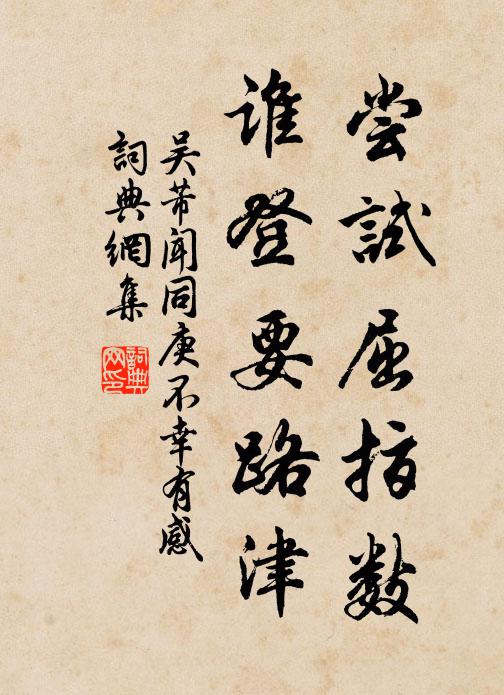 尝試屈指数
谁登要路津
吴芾闻同庚不幸有感
詞典網集
詞典网印